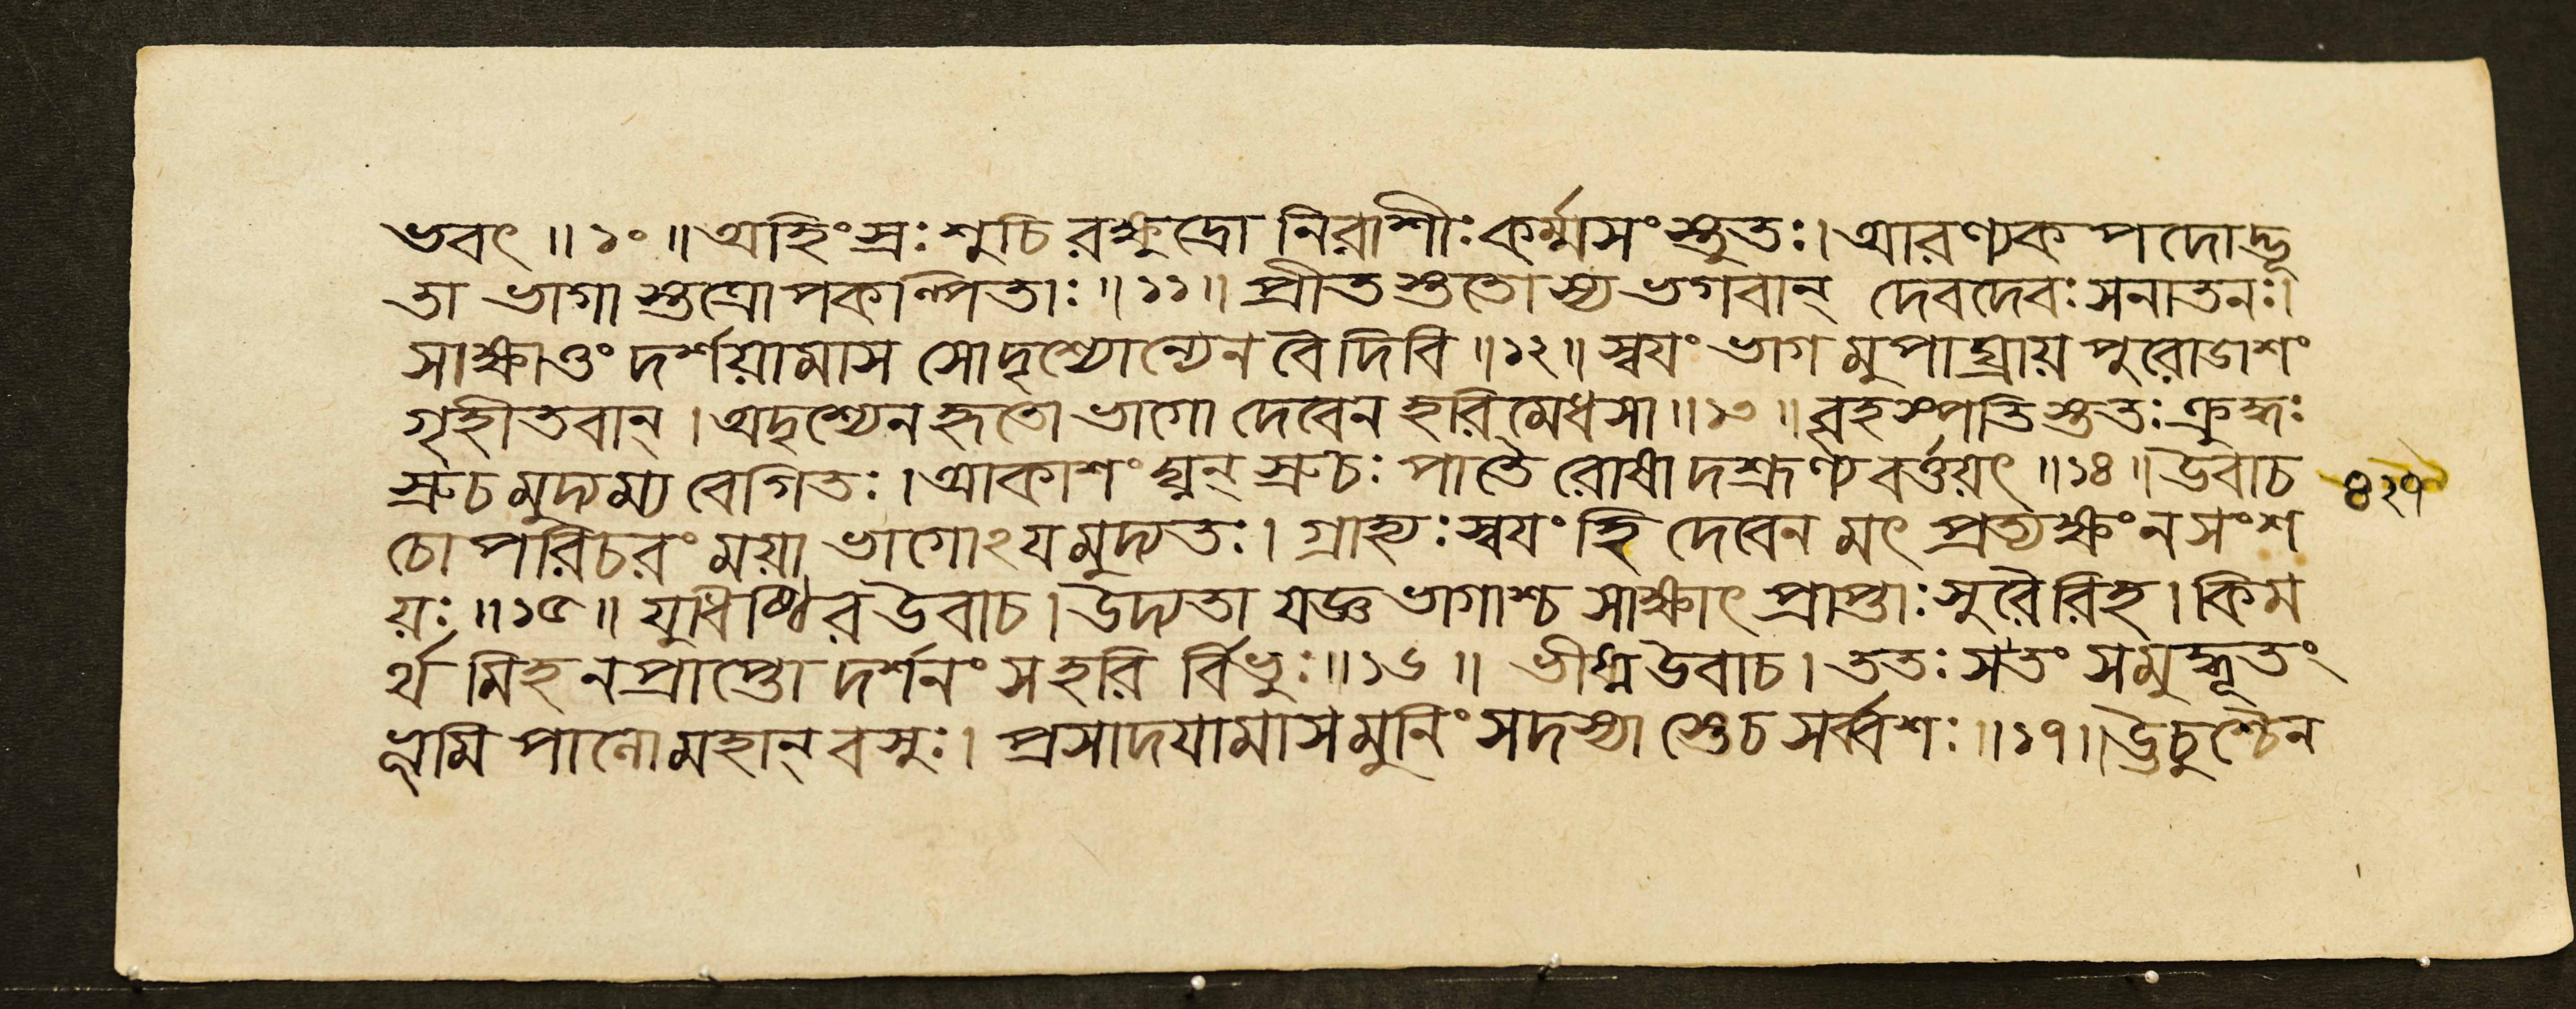 ভবৎ ॥ ১০ ॥ অহিংস্রঃ শুচি রক্ষুদ্রো নিরাশীঃ কর্ম্মসংস্তুতঃ। আরণ্যক পদোদ্ভূ
তা ভাগা স্তত্রোপকল্পিতাঃ ॥ ১১ ॥ প্রীত স্ততোস্য ভগবান্ দেবদেবঃ সনাতনঃ।
সাক্ষাত্তং দর্শয়ামাস সোদৃশ্যোন্যেন বৈ দিবি ॥ ১২ ॥ স্বয়ং ভাগ মুপাঘ্রায় পুরোডাশং
গৃহীতবান্ । অদৃশ্যেন হৃতো ভাগো দেবেন হরিমেধসা ॥ ১৩ ॥ বৃহস্পতি স্ততঃ ক্রুদ্ধঃ
স্রুচ মুদ্যম্য বেগিতঃ । আকাশং ঘ্নন্ স্রুচঃ পাতৈ রোষা দশ্রূণ্য বর্ত্তয়ৎ ॥ ১৪ ॥ উবাচ ৪২৭
চোপরিচরং ময়া ভাগোঽয মুদ্যতঃ। গ্রাহ্যঃ স্বযং হি দেবেন মৎ প্রত্যক্ষং ন সংশ
য়ঃ ॥ ১৫ ॥ যুধিষ্ঠির উবাচ । উদ্যতা যজ্ঞ ভাগাশ্চ সাক্ষাৎ প্রাপ্তাঃ সুরৈরিহ । কিম
র্থ মিহ ন প্রাপ্তো দর্শনং স হরি র্বিভুঃ ॥ ১৬ ॥ ভীষ্ম উবাচ । ততঃ স তং সমুদ্ধূতং
ভূমি পালো মহান্ বসুঃ। প্রসাদযামাস মুনিং সদস্যা স্তেচ সর্ব্বশঃ ॥ ১৭ ॥ ঊচুশ্চৈন